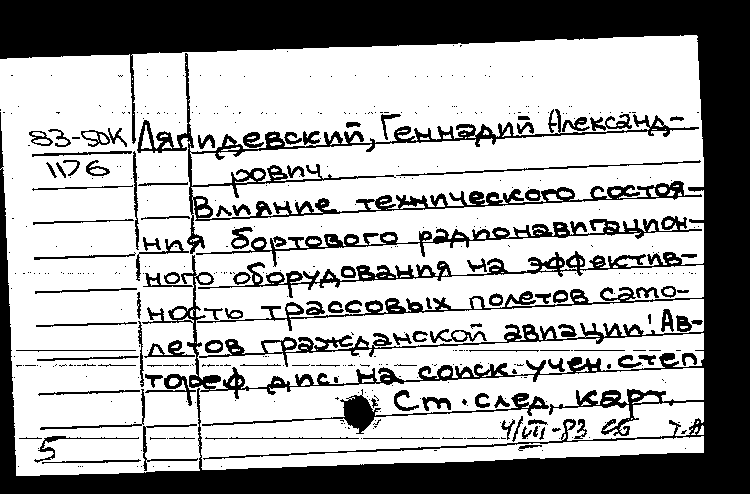 83-5DK Ляпидевский, Геннадий Александ-
1176 рович.
Влияние технического состоя-
ния бортового радионавигацион-
ного оборудования на эффектив-
ность трассовых полетов само-
летов гражданской авиации: Ав-
тореф. дис. на соиск. учен. степ.
Ст. след. карт.
4/VII-83
5